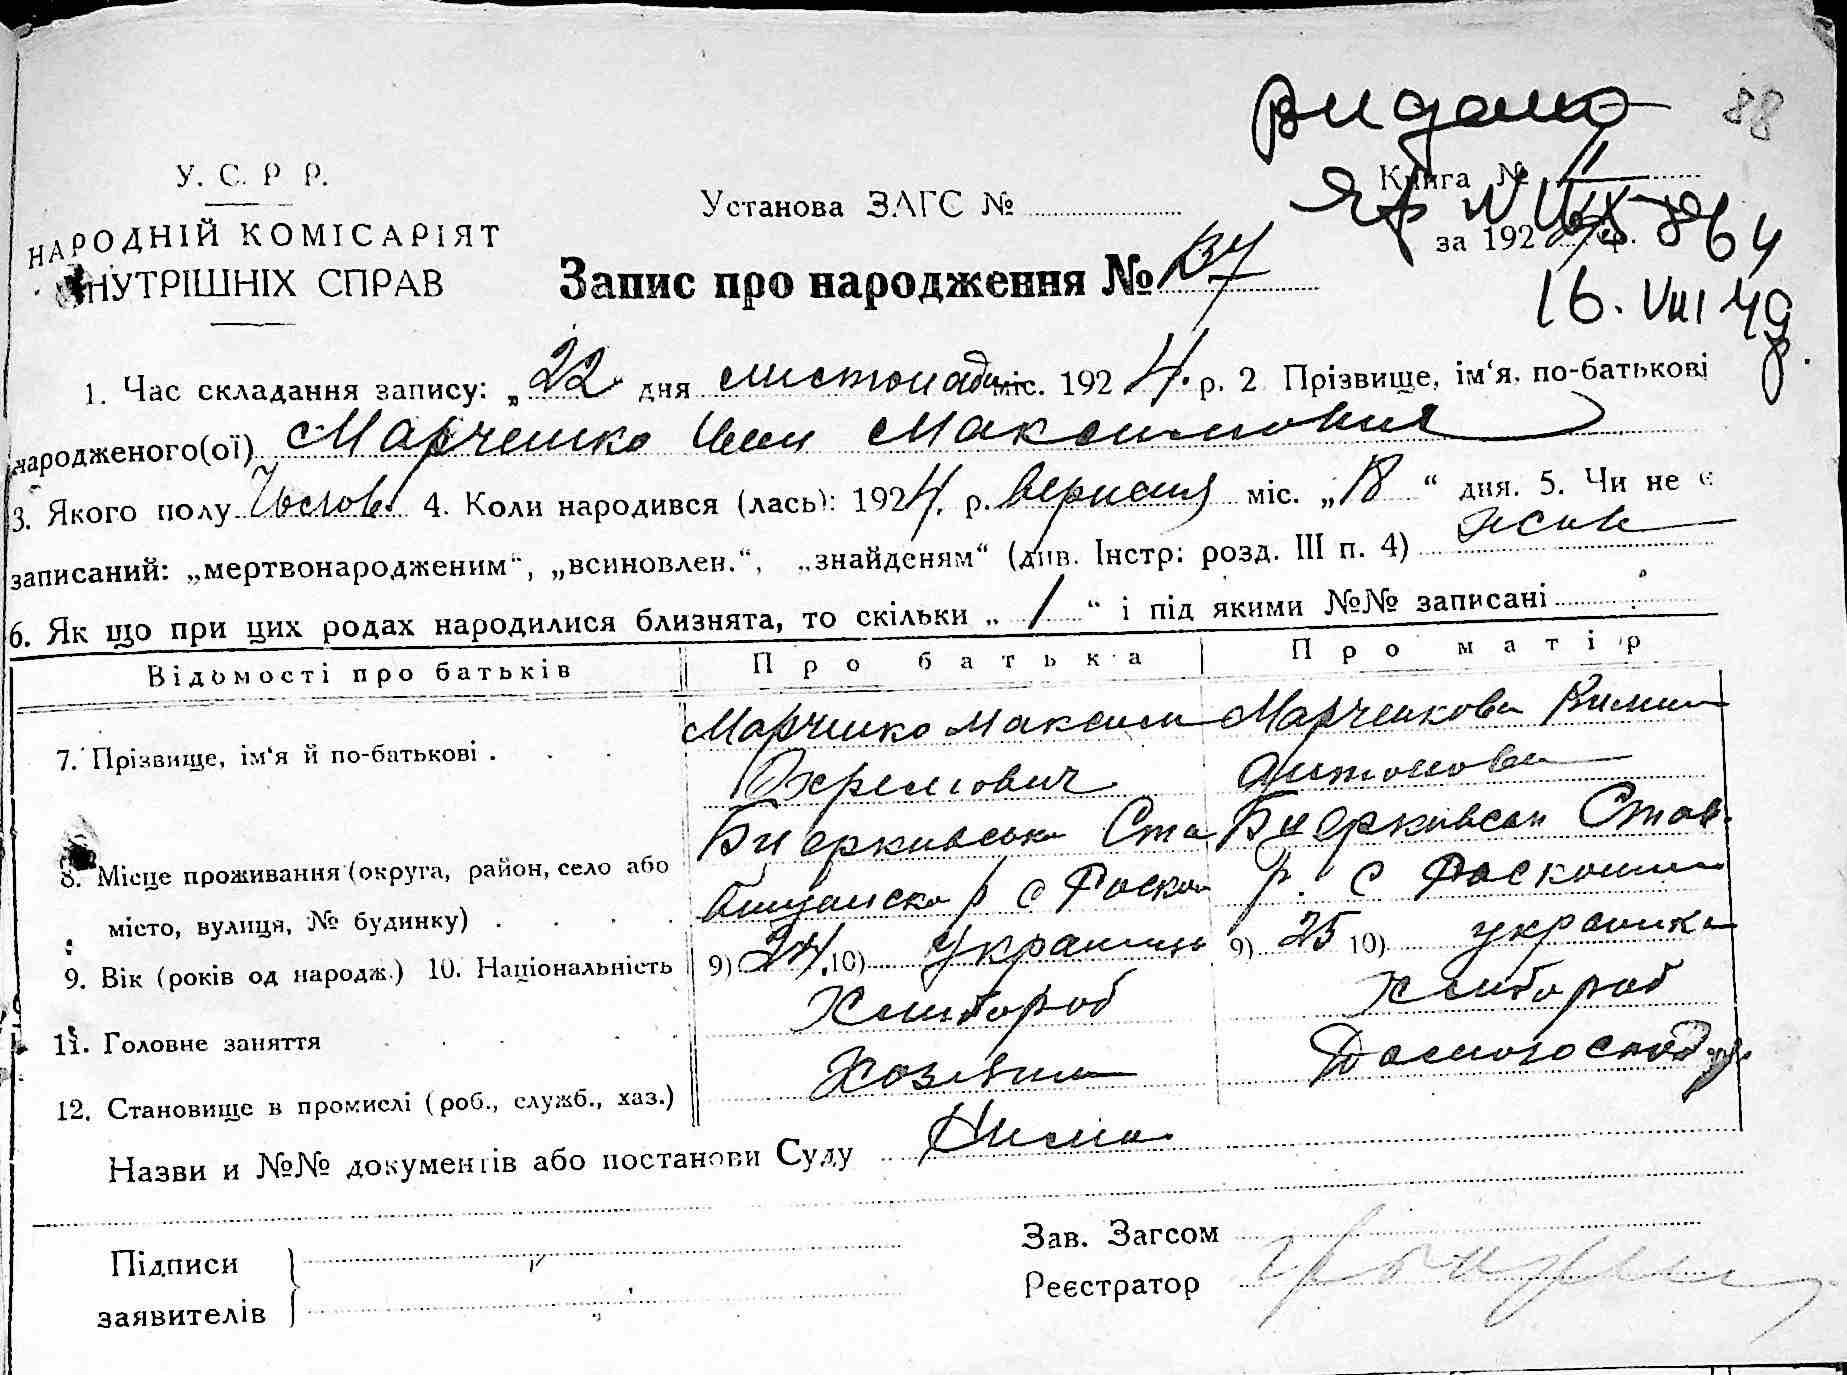 Видано 88
У. С. Р. Р.
Установа ЗАГС №
Книга № II
ЯР № 864
за 192
НАРОДНІЙ КОМІСАРІЯТ
ВНУТРІШНІХ СПРАВ
Запис про народження № 137
16. VIII 49 р.
1. Час складання запису: „22 дня листопада міс. 1924. р. 2 Прізвище, ім‘я, по-батькові
народженого(ої) Марченко Иван Максимович
3. Якого полу Чолов. 4. Коли народився (лась): 1924. р. вересня міс. „18“ дня. 5. Чи не є
записаний: „мертвонародженим“, „всиновлен.“, „знайденям“ (див. Інстр: розд. III п. 4)
6. Як що при цих родах народилися близнята, то скільки „1“ і під якими №№ записані
Відомості про батьків Про батька Про матір
7. Прізвище, ім‘я й по-батькові . Марченко Максим Марченкова
Охремович Антонова
8. Місце проживання (округа, район, село або
місто, вулиця, № будинку) р. с
9. Вік (років од народж.) 10. Національність 9) 24. 10) Украинец 9) 25 10) украинка
11. Головне заняття Хлибороб Хлибороб
12. Становище в промислі (роб., служб., хаз.) Хозяин
Назви и №№ документів або постанови Суду Нима
Підписи
заявителів
Зав. Загсом
Реєстратор